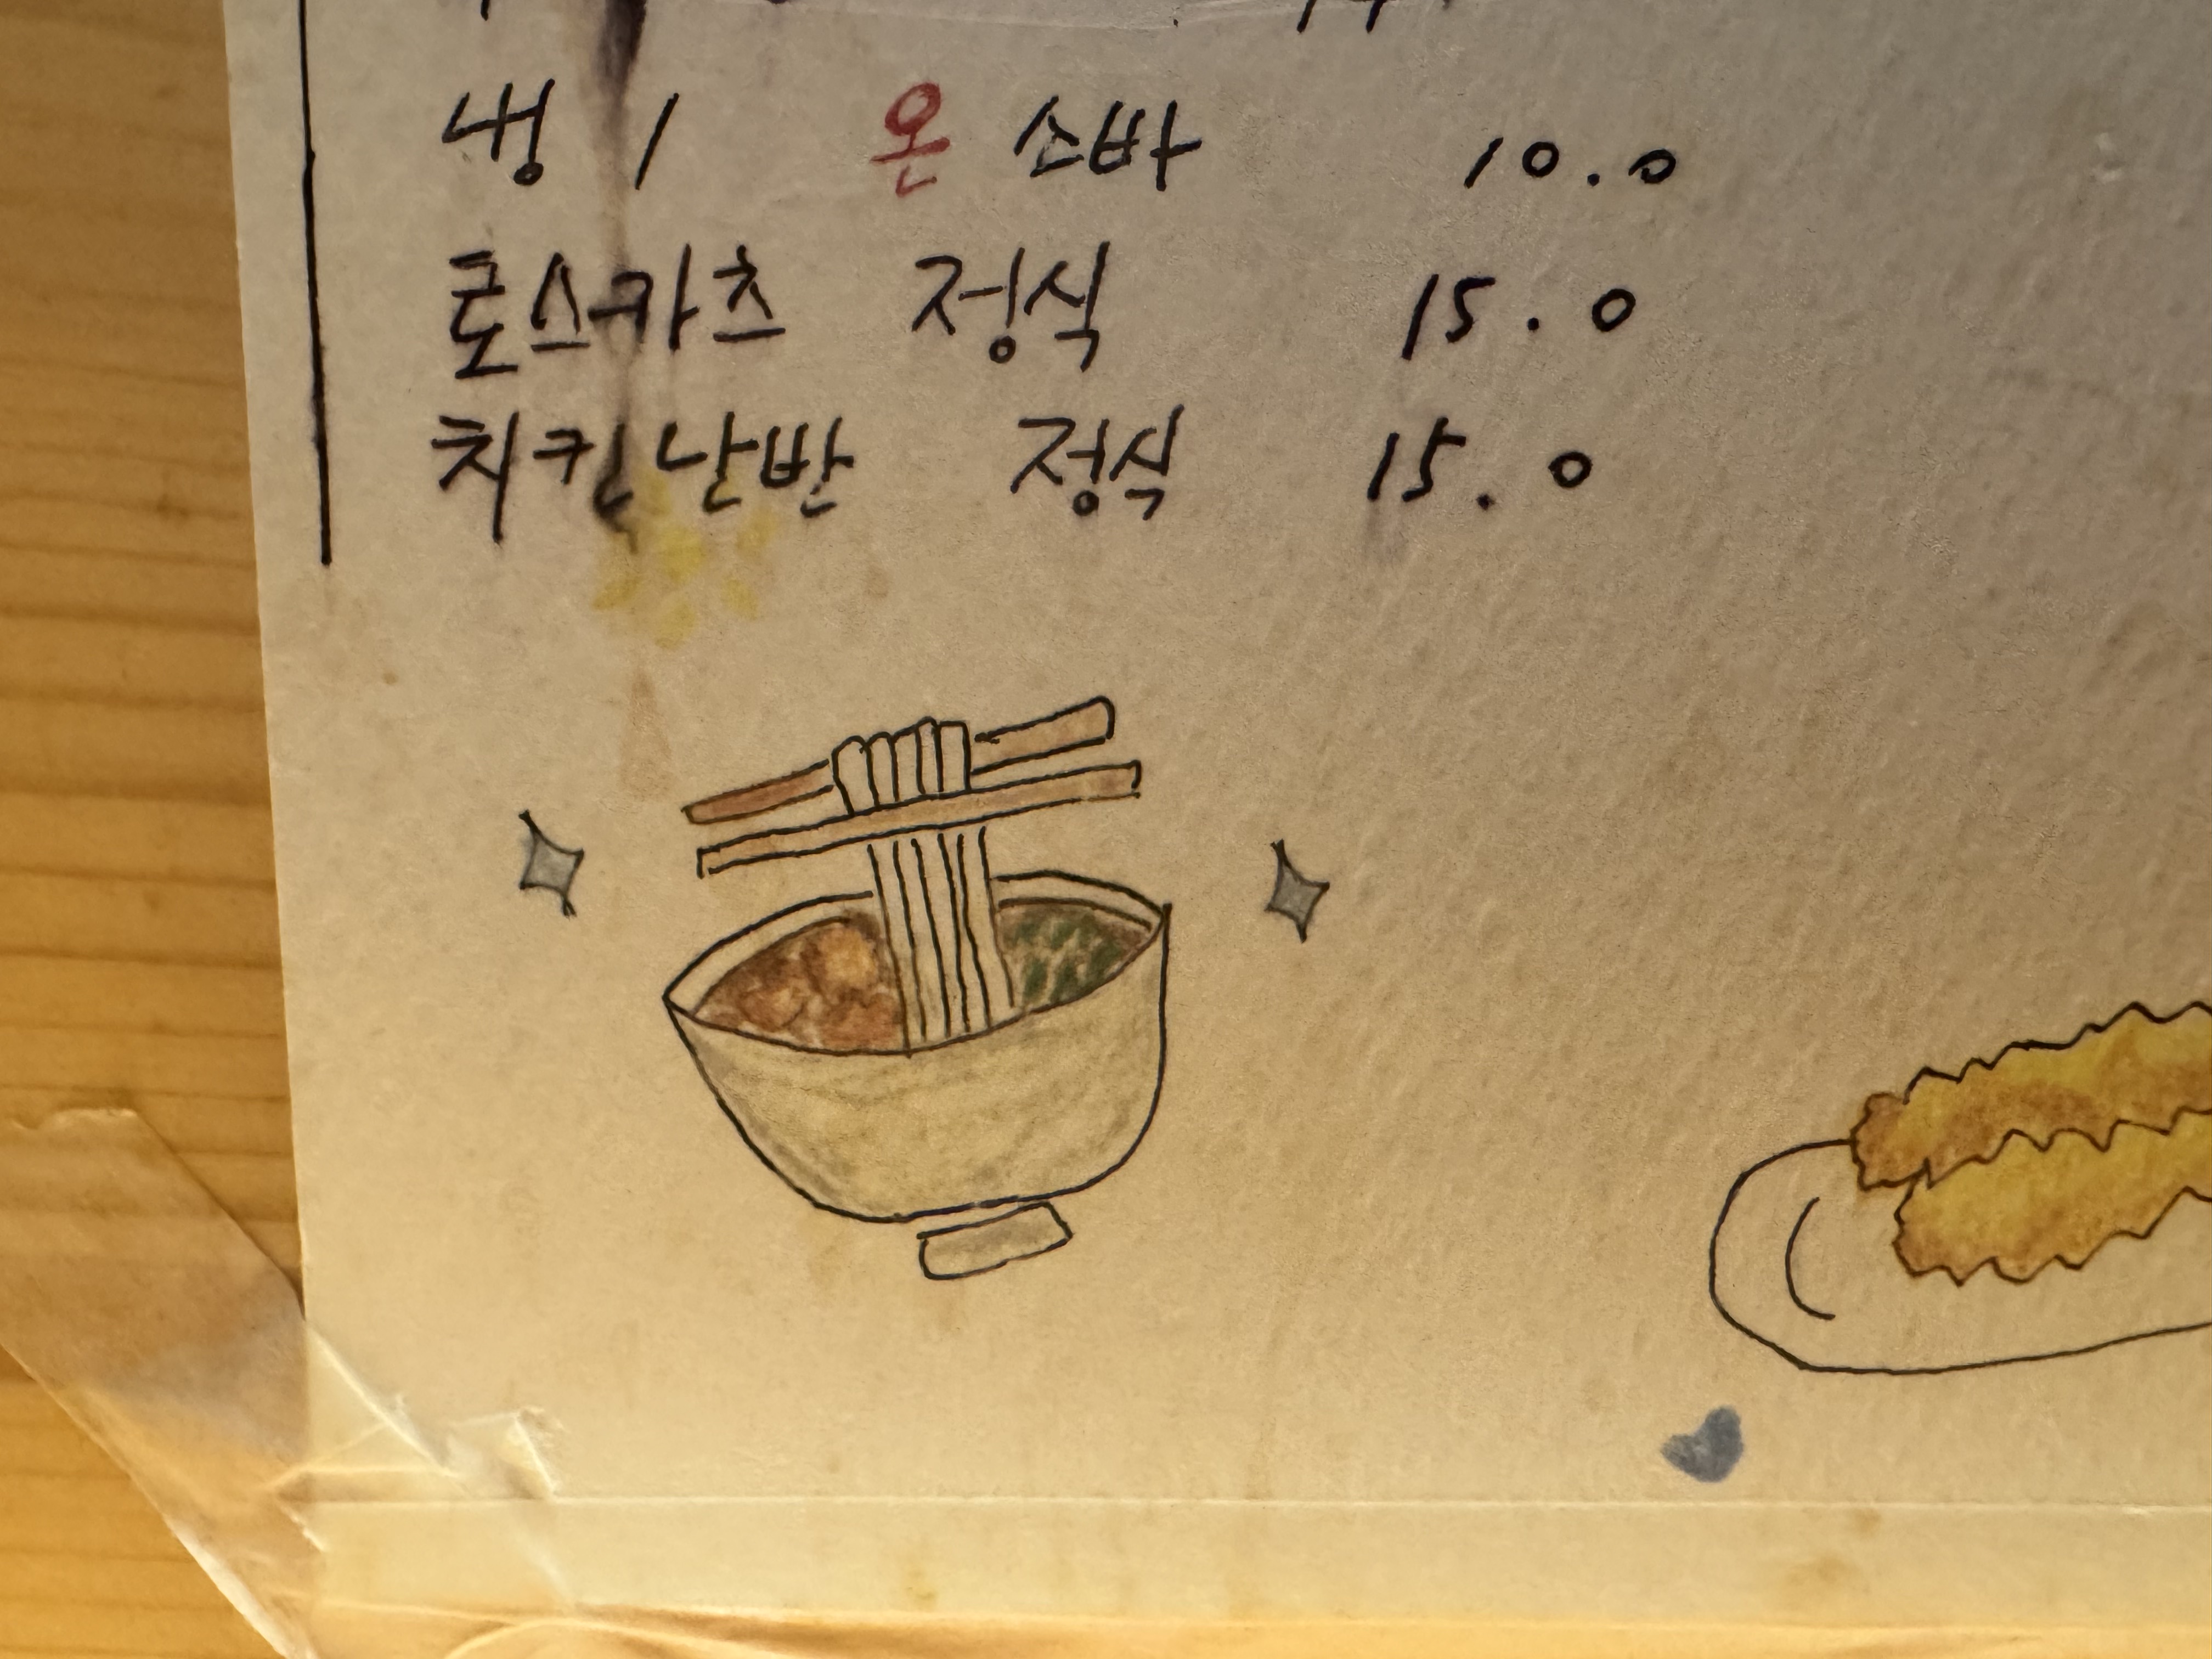 냉 / 온 소바 10.0
로스카츠 정식 15.0
치킨난반 정식 15.0